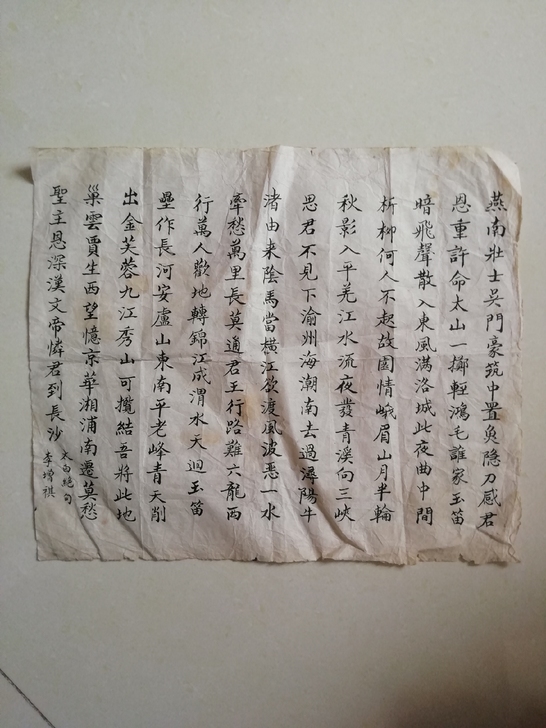 燕南壯士吳門豪筑中置魚隐刀感君
恩重許命太山一擲輕鴻毛誰家玉笛
暗飛聲散入東風滿洛城此夜曲中聞
折柳何人不起故園情峨眉山月半輪
秋影入平羌江水流夜發青溪向三峽
思君不見下渝州海潮南去過潯陽牛
渚由来險馬當橫江欲渡風波惡一水
牽愁萬里長莫道君王行路難六龍西
行萬人歡地轉錦江成渭水天迴玉
壘作長安廬山東南五老峰青天削
出金芙蓉九江秀山可攬結吾將此地
巢雲賈生西望憶京華湘浦南遷莫愁
聖主恩深漢文帝憐君到長沙
太白絕句
李增祺